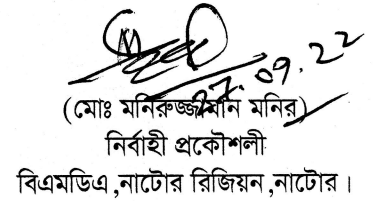 27.09.22
(মোঃ মনিরুজ্জামান মনির)
নির্বাহী প্রকৌশলী
বিএমডিএ,নাটোর রিজিয়ন,নাটোর।